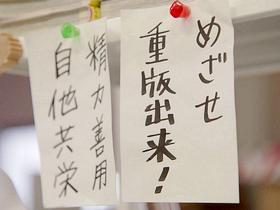 めざせ
重版出来！
精力善用
自他共栄